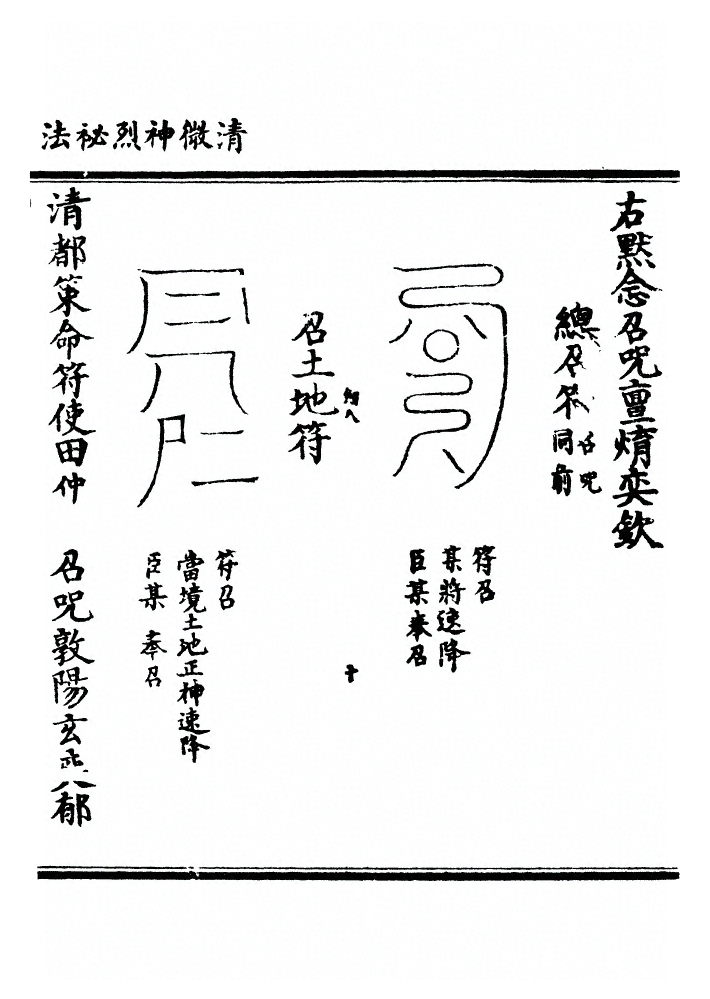 清微神烈祕法
右默念召咒亶焴奕欽
總召符召咒同前
符召
某將速降
臣某奉召
召土地符
十
符召
當境土地正神速降
臣某 奉召
清都策命符使田仲 召咒敦陽玄
郁